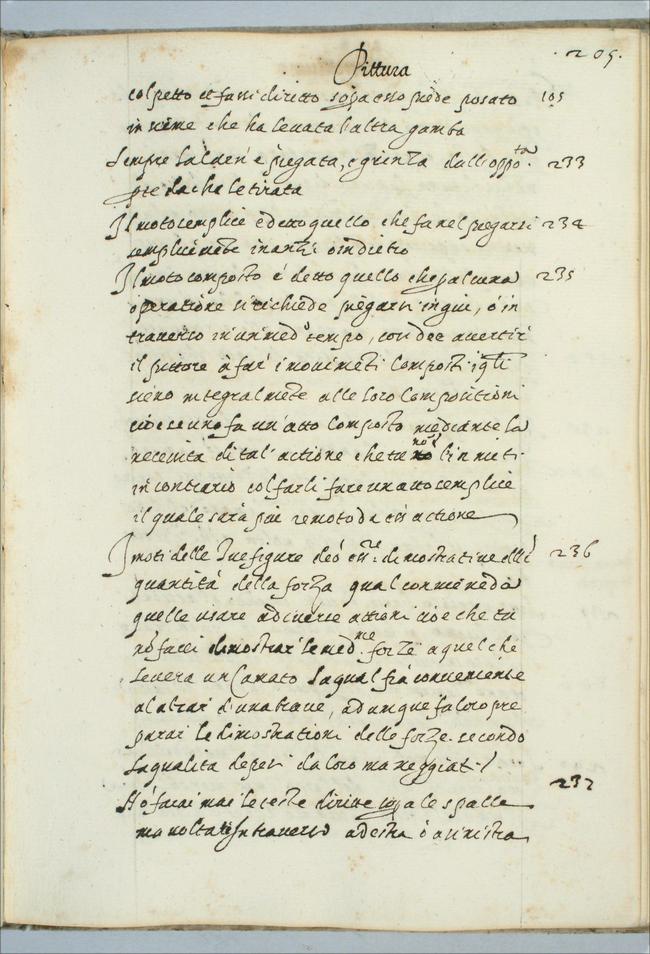 . 205.
Pittura
col petto et farsi diritto sopra esso piede posato 105
insieme che ha levata l'altra gamba
Sempre la carn' è piegata, e grinza dall'oppta. 233
pte da che le tirata
Il moto semplice è detto quello che fa nel piegarsi 234
semplicimete inanzi o indietro
Il moto composto è detto quello che p alcuna 235
operatione si richiede piegarsi in giu, ò in
traverso in un med.o tempo, con dee avertir
il pittore à far i movimeti composti iqli
sieno integralmete alle loro compositioni
cioè se uno fa un'atto composto mediante la
necesita di tal' actione che tu nol l'imieti
in contrario col farli fare un atto semplice
il quale sarà piu remoto da tal actione
I moti delle tue figure deò es.re dimostrative dlla 236
quantità della forza qual conviene dà
quelle usare ad diverse attioni cioè che tu
nò facci dimostrar le med.me forze a quel che
levera un lanato la qual fia conveniente
al alzar d'una trave, adunque fa loro pre
parar le dimostrationi delle forze secondo
la qualita de pesi da loro maneggiati
Nò farai mai le teste diritte sopra le spalle 237
ma voltate in traverso a destra ò a sinistra